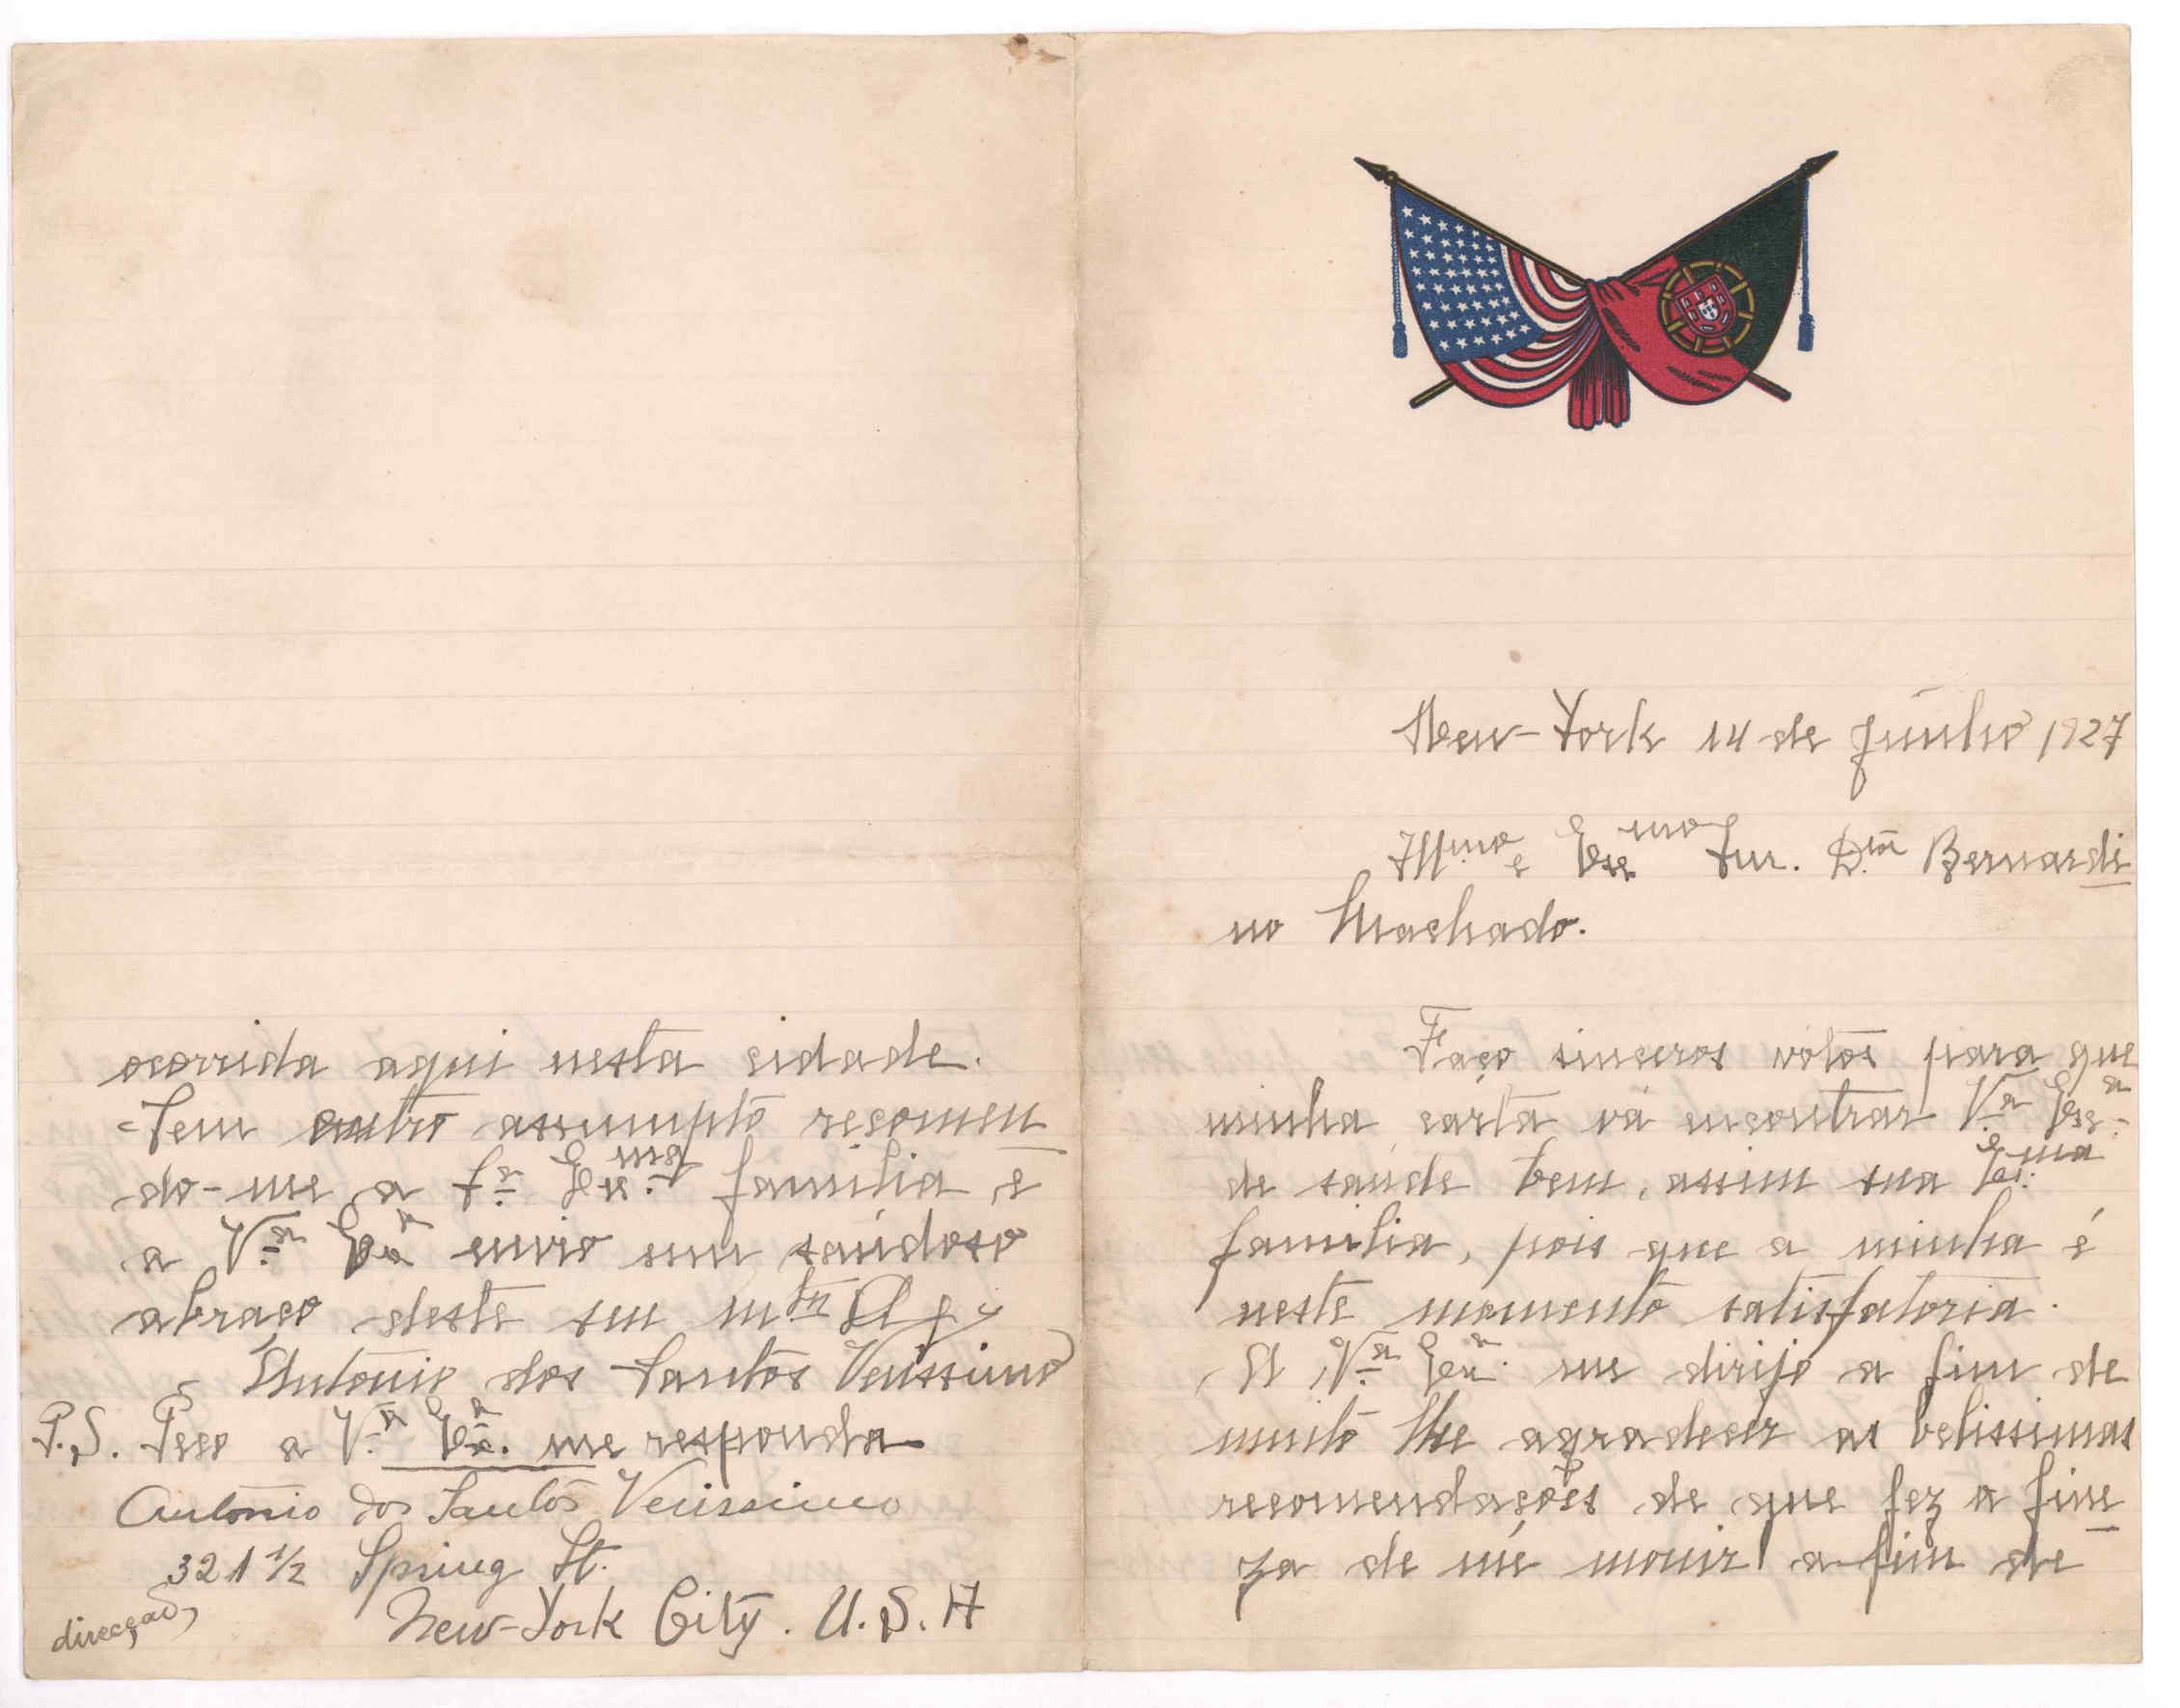 New-York 14 de junho 1927
Illmo e Exmo Snr. Dor Bernardi
no Machado.
Faço sinceros vótos para que
minha carta vá encontrar V.a Exc.a
de saúde bem, assim sua Ex.ma
familia, pois que a minha é
neste momento satisfatoria.
A V.a Ex.a me dirijo a fim de
muito lhe agradecer as belissimas
recomendações de que fez a fine
za de me monir a fim de
ocorrida aqui nesta cidade.
Sem outro assumpto recomen
do-me a S.a Ex.ma familia e
a V.a Exa envio um saúdoso
abraço deste seu
Antonio dos Santos Verissimo
P.S. Peço a V.a Ex.a me responda
Antonio dos Santos Verissimo
321 1/2 Spring St.
direcção,
New-York City. U.S.A